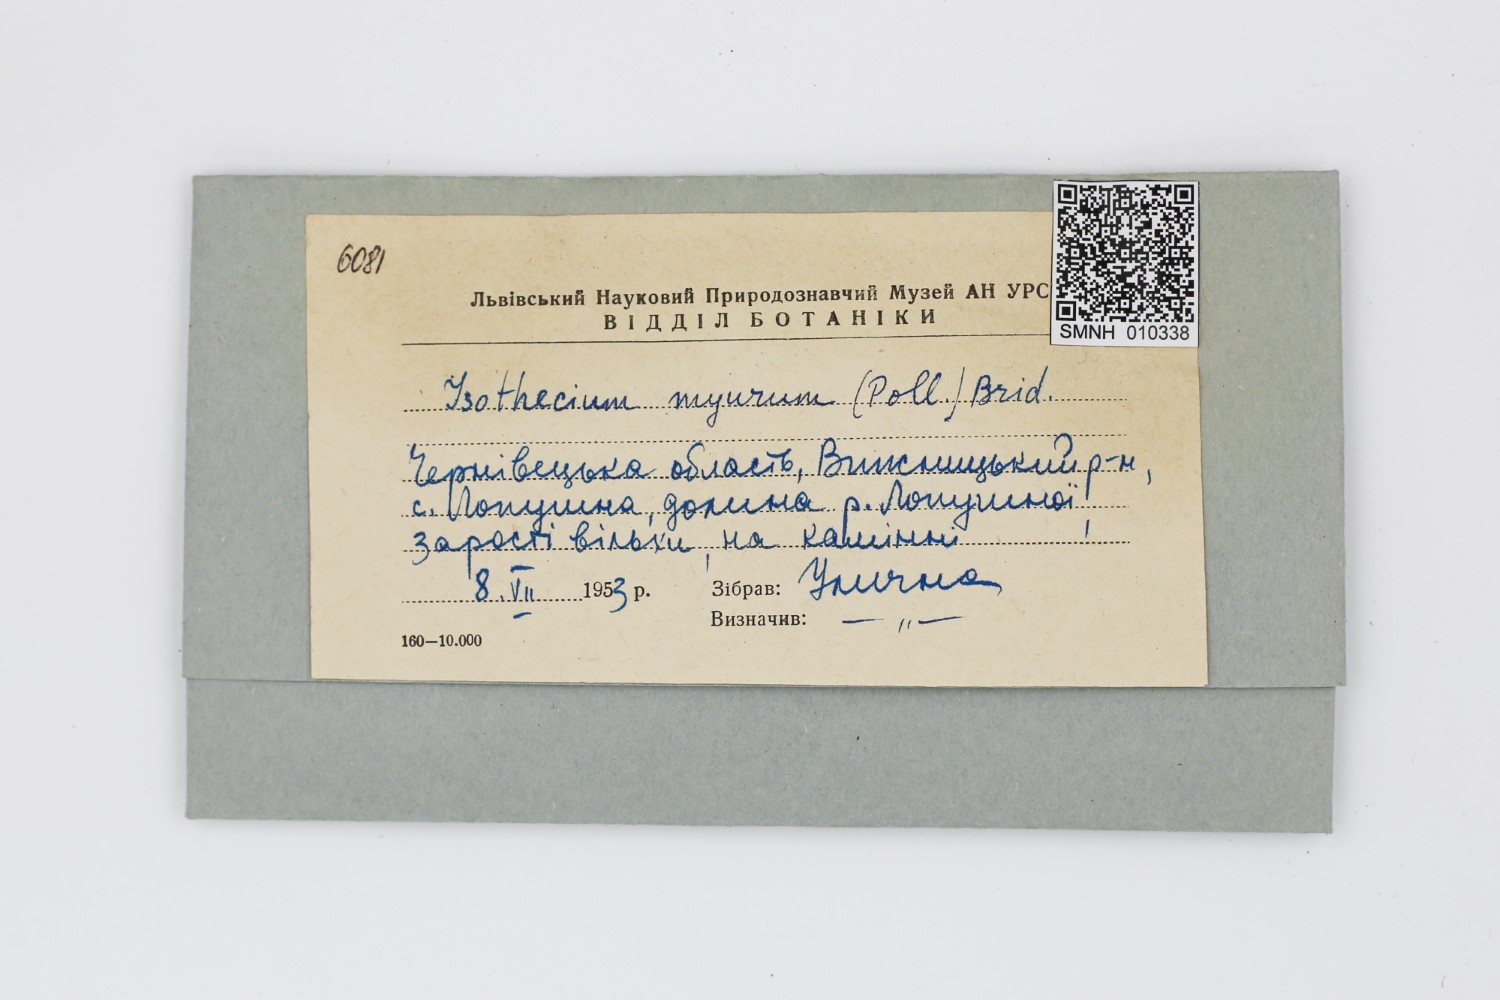 6081
Львівський Науковий Природознавчий Музей АН УРС
ВІДДІЛ БОТАНІКИ
SMNH 010338
Isothecium myurum (Poll.) Brid.
Чернівецька область, Вижницький р-н,
с. Лопушна, долина р. Лопушної,
зарості вільхи, на камінні
8.VII 1953 р. Зібрав: Улична
Визначив: — „ —
160—10.000